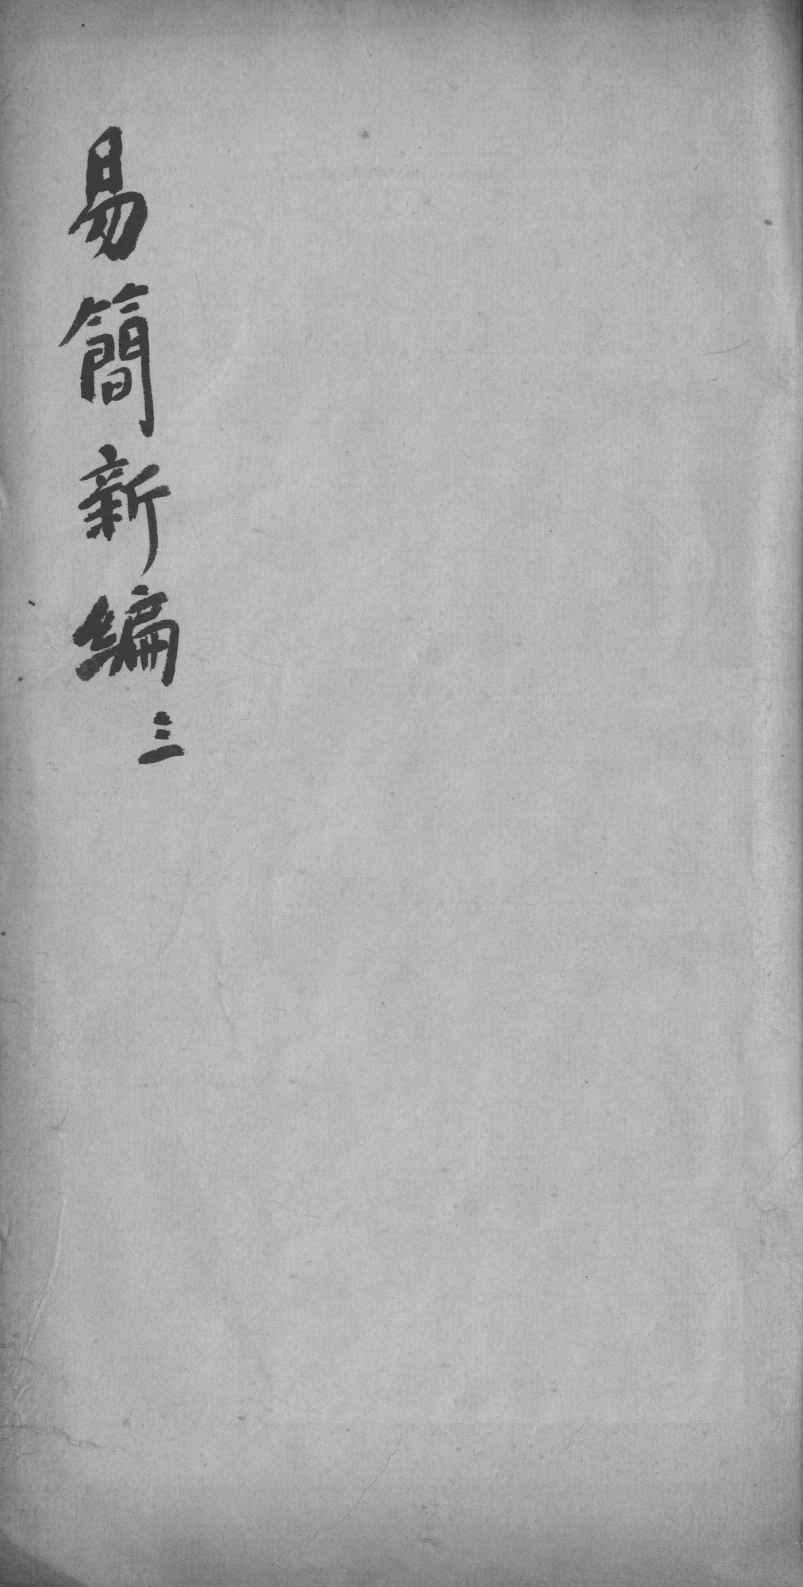 易簡新編三